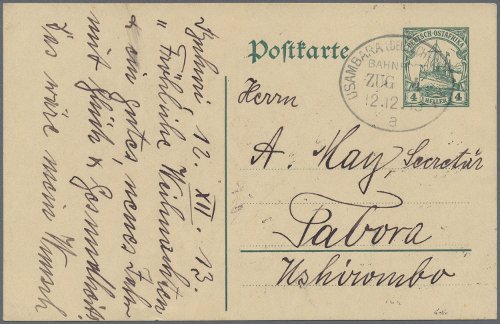 12. XII. 13.
"Fröhliche Weihnachten
& ein gutes, neues Jahr
mit Glück & Gesundheit"
das wäre mein Wunsch
Postkarte
DEUTSCH-OSTAFRIKA
4 HELLER 4
USAMBARA
BAHN
ZUG
12.12
a
Herrn
A. May, Secretär
Tabora
Ushirombo